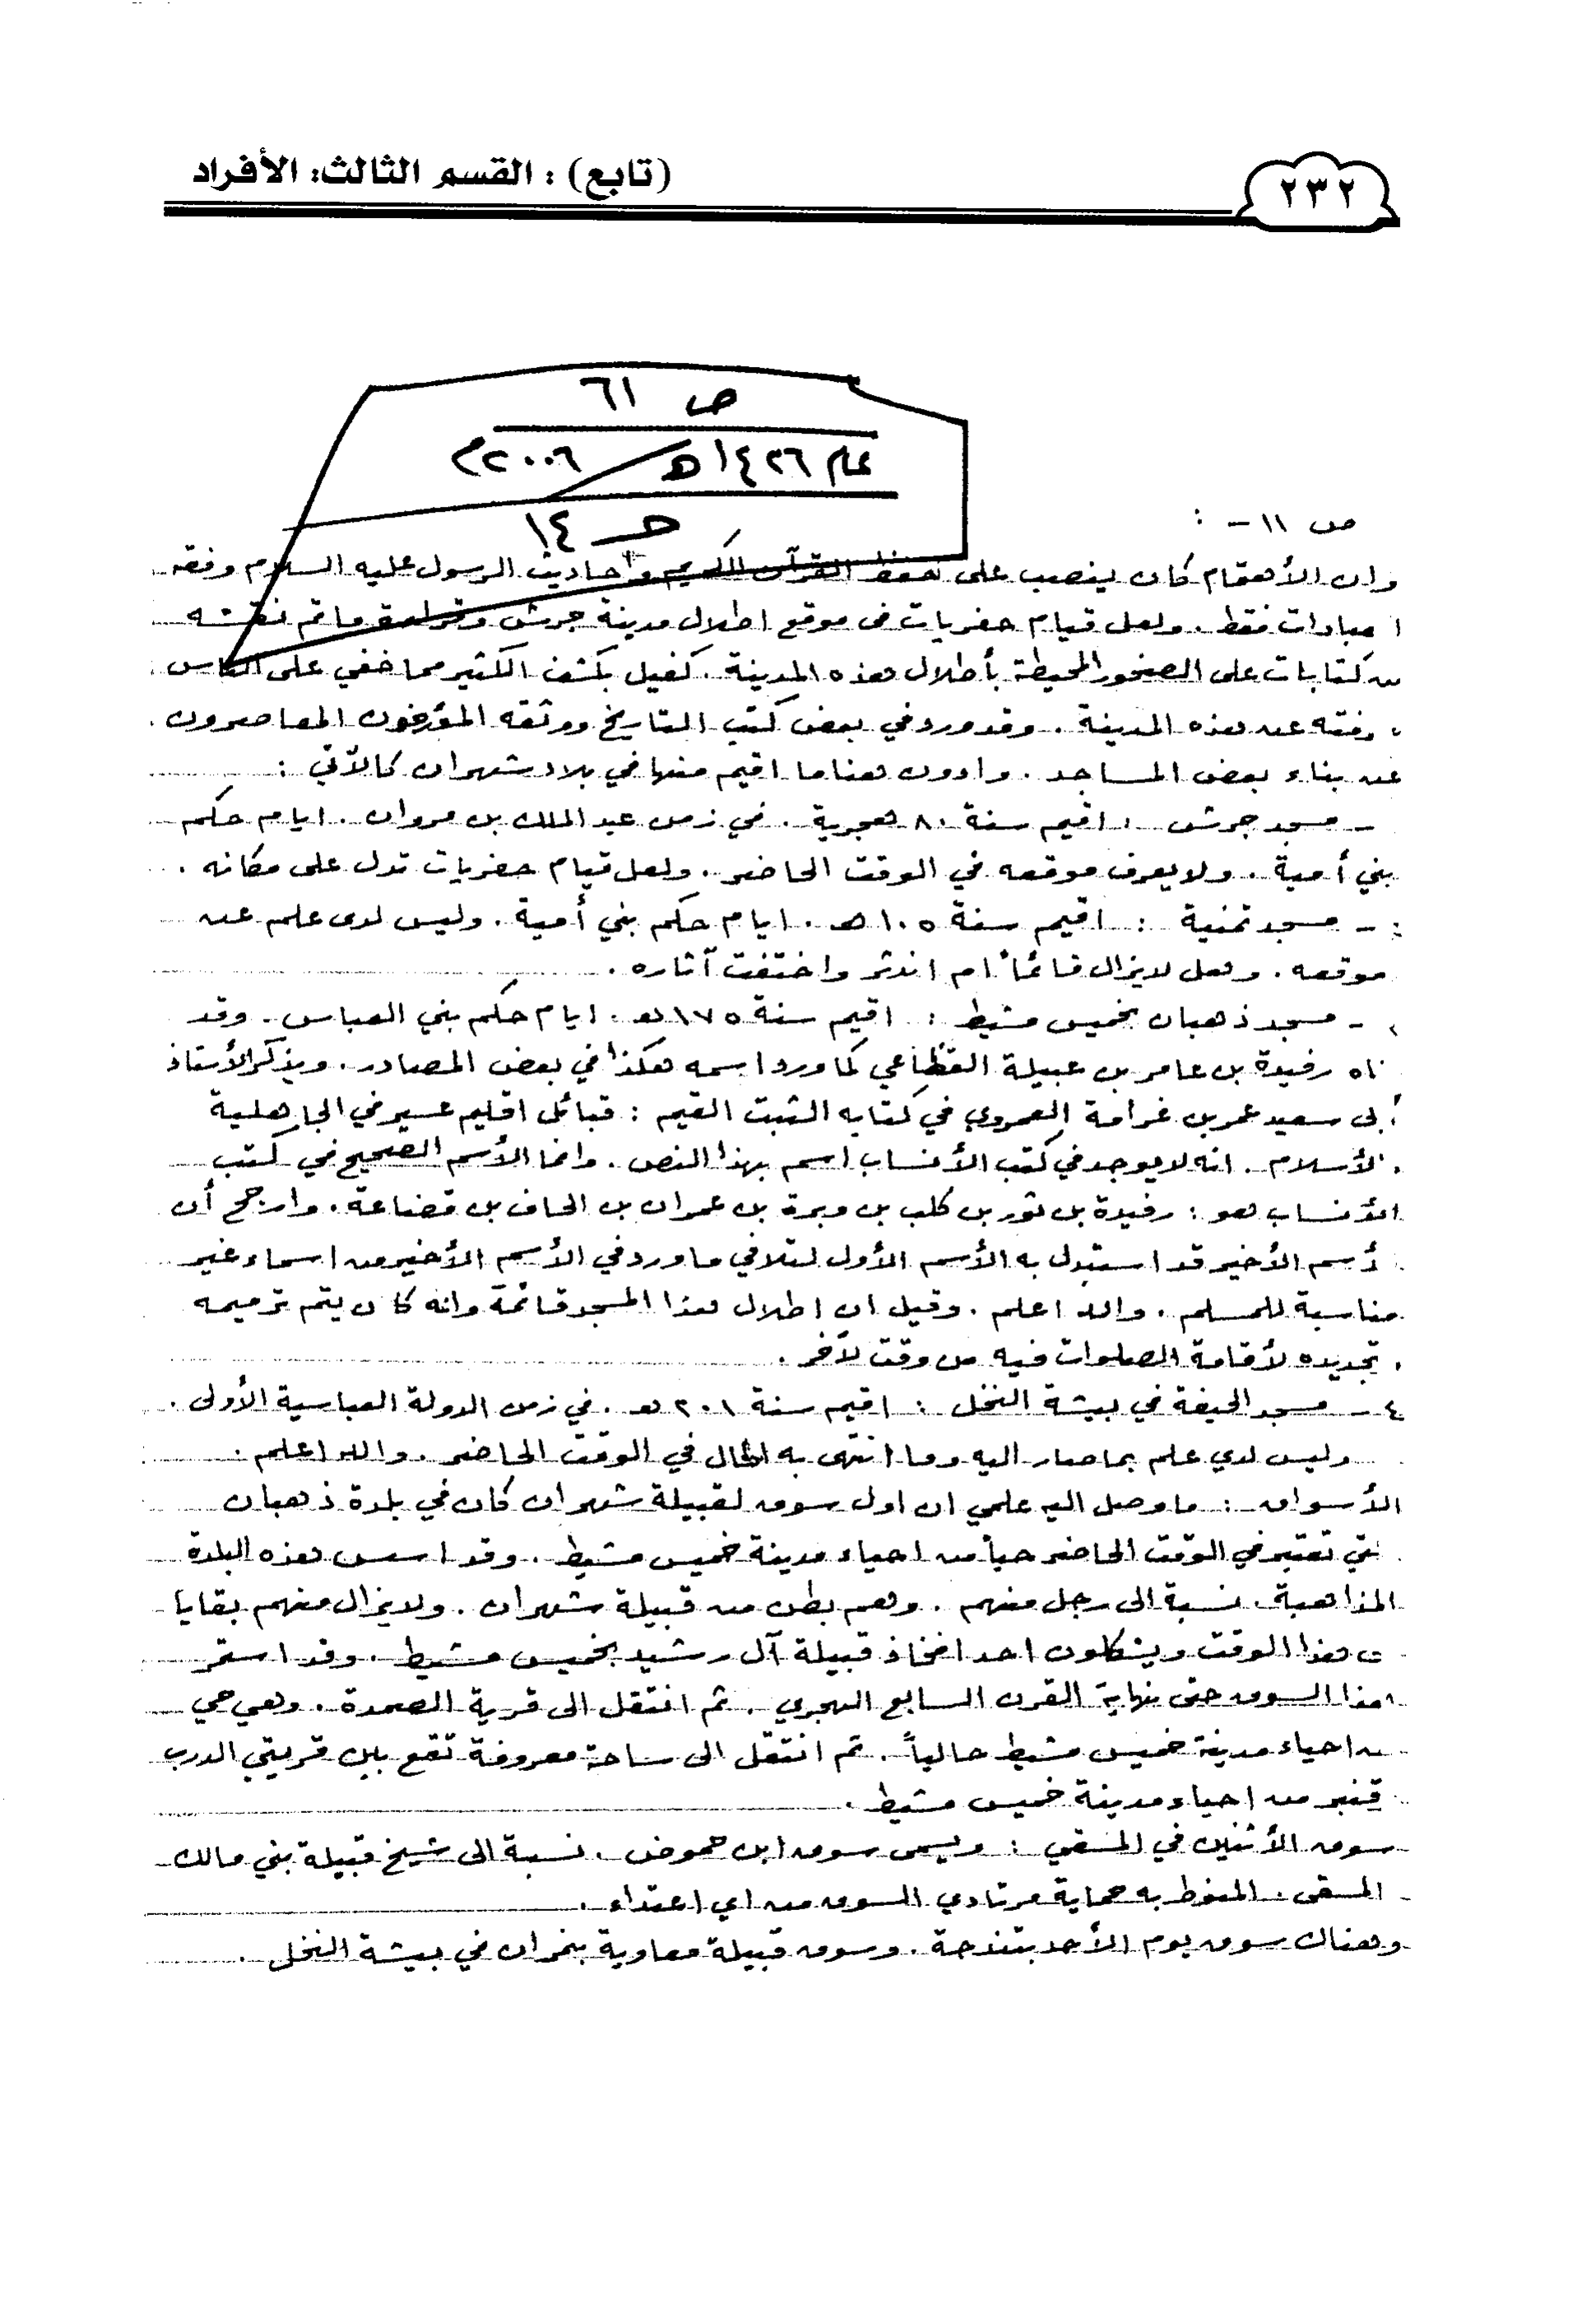 (تابع) : القسم الثالث: الأفراد
٢٣٢
ص ٦١
عام ١٤٢٦هـ / ٢٠٠٦م
حـ ١٤
ص ١١ - :
وان الأهتمام كان ينصب على حفظ القرآن الكريم واحاديث الرسول عليه السلام وفقه
العبادات فقط . ولعل قيام حفريات في موقع اطلال مدينة جرش وقراءة ماتم نقشه
من كتابات على الصخور المحيطة بأطلال هذه المدينة . كفيل بكشف الكثير مما خفي على الناس
عن هذه المدينة . وقد ورد في بعض كتب التاريخ ووثقه المؤرخون المعاصرون .
عن بناء بعض المساجد . وادون هنا ما اقيم منها في بلاد شهران كالآتي :
- مسجد جرش : اقيم سنة ٨٠ هجرية . في زمن عبد الملك بن مروان . ايام حكم
بني أمية . ولا يعرف موقعه في الوقت الحاضر . ولعل قيام حفريات تدل على مكانه .
: - مسجد تمنية : اقيم سنة ١٠٥ هـ . ايام حكم بني أمية . وليس لدى علم عن
موقعه . وهل لايزال قائماً ام اندثر واختفت آثاره .
- مسجد ذهبان بخميس مشيط : اقيم سنة ١٧٥ هـ . ايام حكم بني العباس . وقد
ناه رفيدة بن عامر بن عبيلة القظاعي كما ورد اسمه هكذا في بعض المصادر . ويذكر الأستاذ
أبى سعيد عمر بن غرامة العمروي في كتابه الثبت القيم : قبائل اقليم عسير في الجاهلية
. الأسلام . انه لايوجد في كتب الأنساب اسم بهذا النص . وانما الأسم الصحيح في كتب
الأنساب هو : رفيدة بن ثور بن كلب بن وبرة بن عمران بن الحاف بن قضاعة . وارجح أن
الأسم الأخير قد استبدل به الأسم الأول لتلافي ما ورد في الأسم الأخير من اسماء غير
مناسبة للمسلم . والله اعلم . وقيل ان اطلال هذا المسجد قائمة وانه كان يتم ترميمه
. تجديده لأقامة الصلوات فيه من وقت لآخر .
٤ - مسجد الحيفة في بيشة النخل : اقيم سنة ٢٠١ هـ . في زمن الدولة العباسية الأولى .
وليس لدي علم بما صار اليه وما انتهى به الحال في الوقت الحاضر . والله اعلم :
الأسواق : ما وصل اليه علمي ان اول سوق لقبيلة شهران كان في بلدة ذهبان
تي تعتبر في الوقت الحاضر حياً من احياء مدينة خميس مشيط . وقد اسس هذه البلدة
المذاهبة . نسبة الى رجل منهم . وهم بطن من قبيلة شهران . ولايزال منهم بقايا
ت هذا الوقت ويشكلون احد افخاذ قبيلة آل رشيد بخميس مشيط . وقد استمر
هذا السوق حتى نهاية القرن السابع الهجري . ثم انتقل الى قرية الصمدة . وهي حي
من احياء مدينة خميس مشيط حالياً . ثم انتقل الى ساحة معروفة تقع بين قريتي الدرب
قنبر من احياء مدينة خميس مشيط .
سوق الأثنين في المسقي : ويسمى سوق ابن حموض . نسبة الى شيخ قبيلة بني مالك
المسقى . المنوط به حماية مرتادي السوق من اي اعتداء .
وهناك سوق يوم الأحد بتندحة . وسوق قبيلة معاوية بنمران في بيشة النخل .